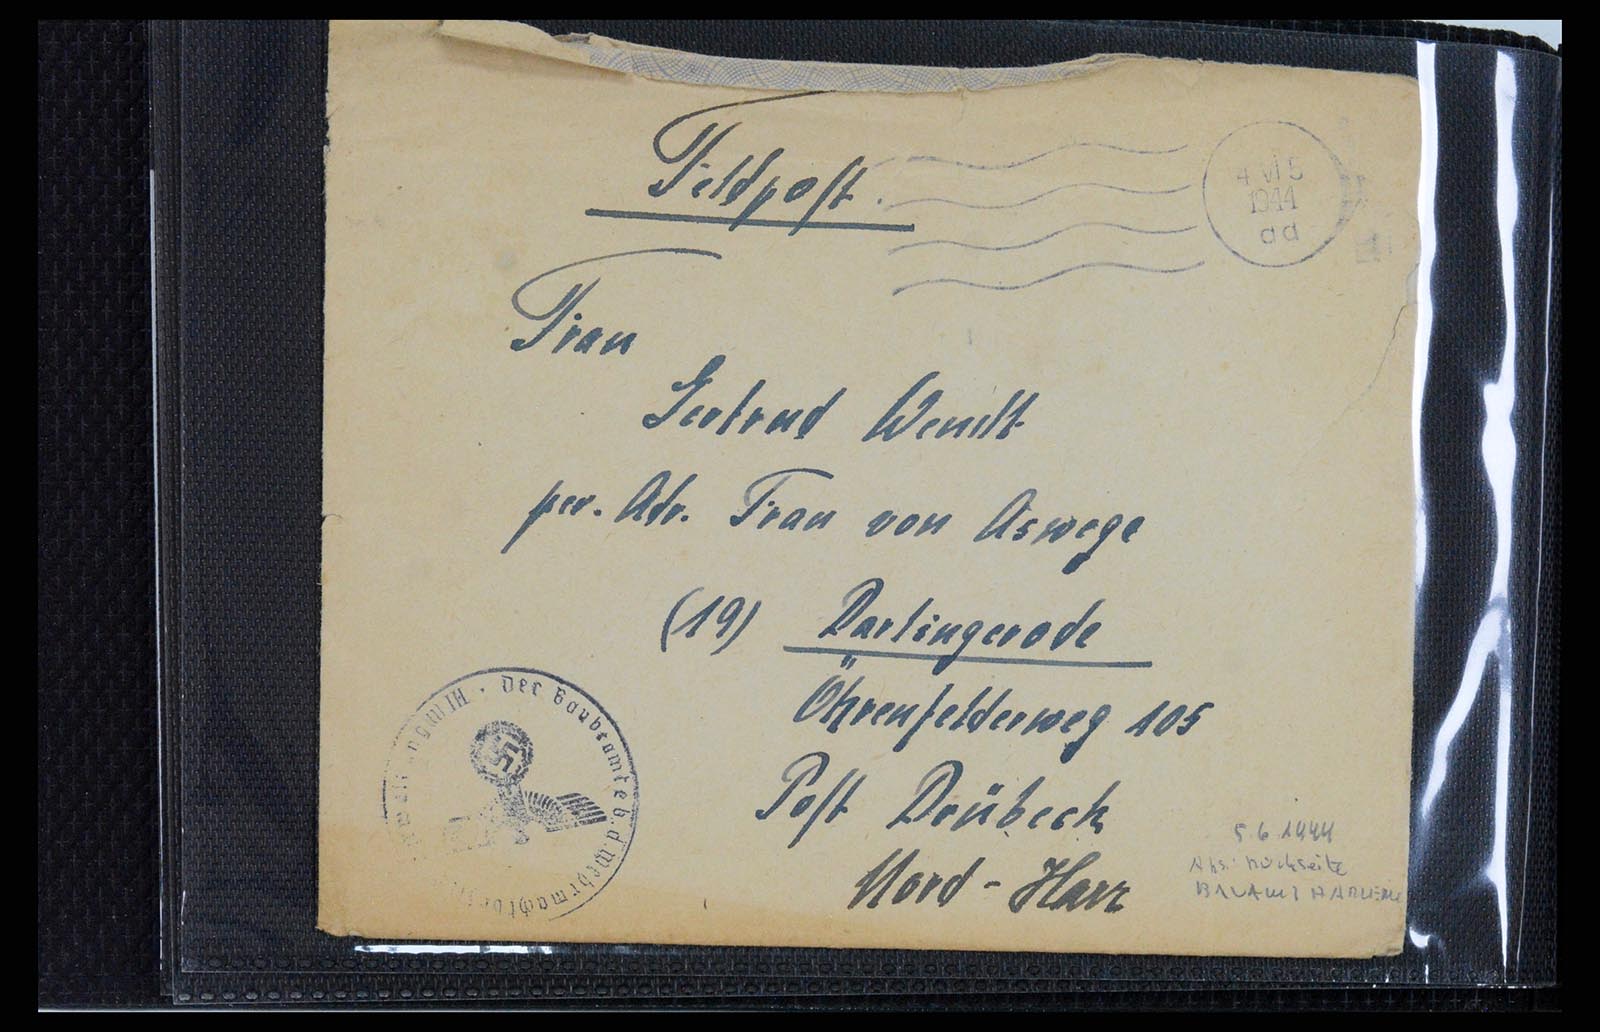 Feldpost.
4 VI 5
1944
Frau
Gertrud Wendt
per. Adr. Frau von Aswege
(19) Darlingerode
Öhrenfelderweg 105
Post Drübeck
Nord - Harz
Der Baubeamte b. d. Wehrmacht
5.6.1944
Abs. Rückseite